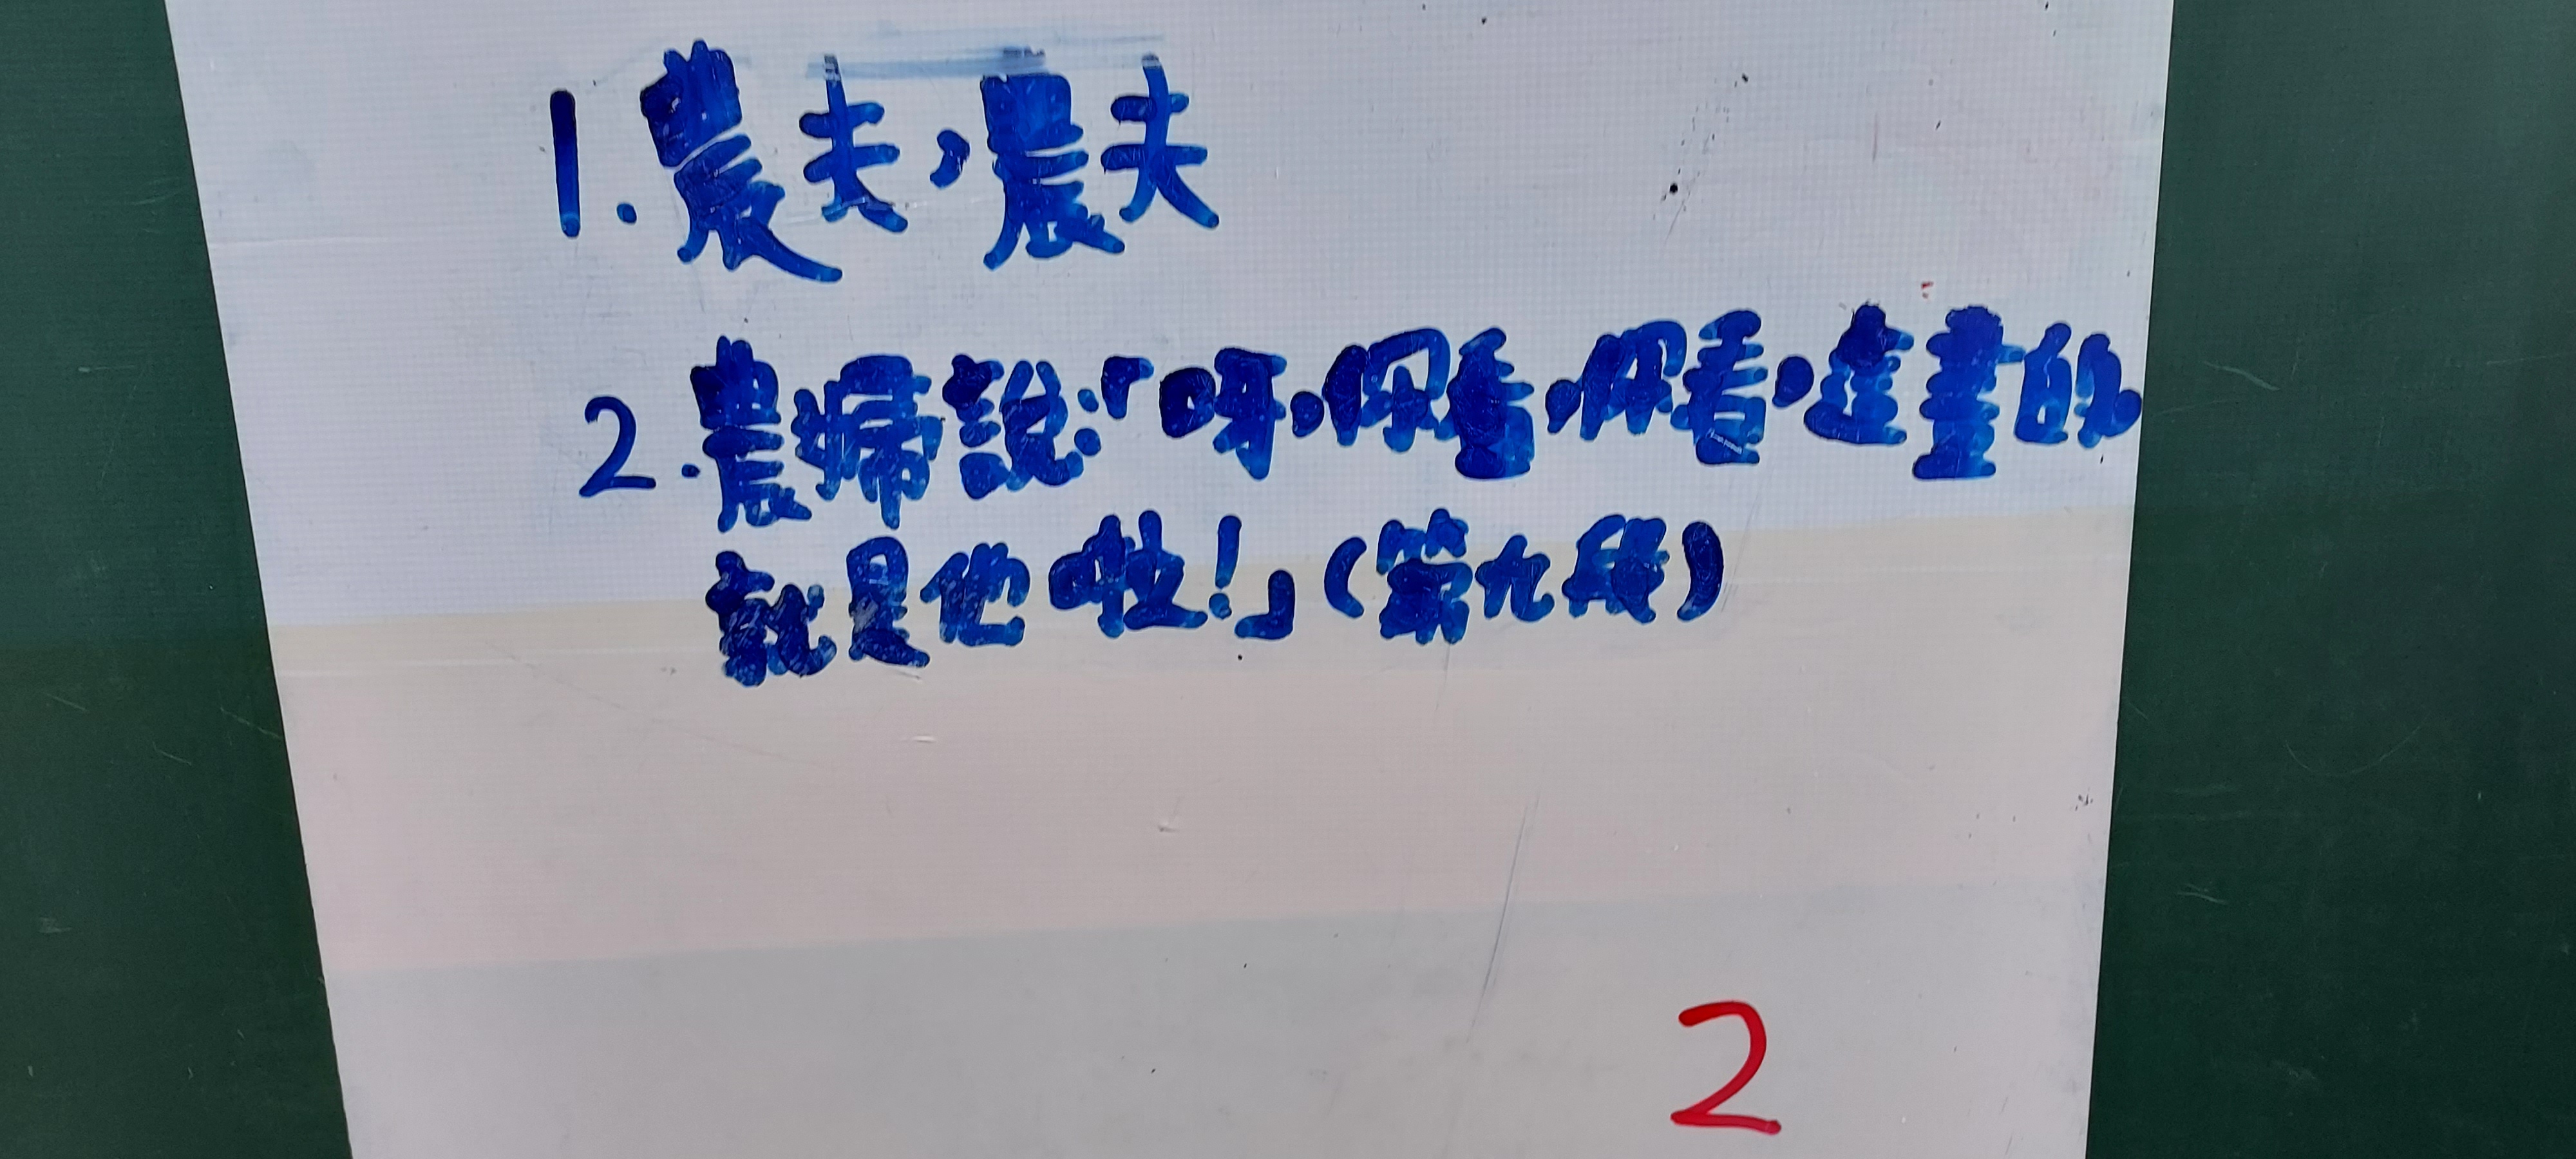 1.農夫,農夫
2.農婦說:「呀,你看,你看,這畫的
就是他啦!」(第九段)
2